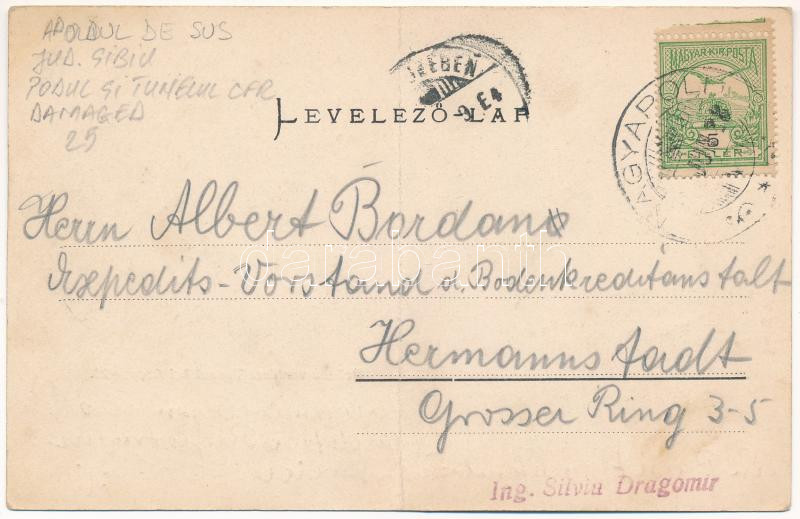 APOLDUL DE SUS
JUD. SIBIU
PODUL ȘI TUNELUL CFR
DAMAGED
25
ZEBEN
LEVELEZŐ-LAP
MAGYAR·KIR·POSTA
5
NAGYAPOLD
Herrn Albert Bordan
Expedits-Vorstand d. Bodenkreditanstalt
darabanth
Hermannstadt
Grosser Ring 3-5
Ing. Silviu Dragomir